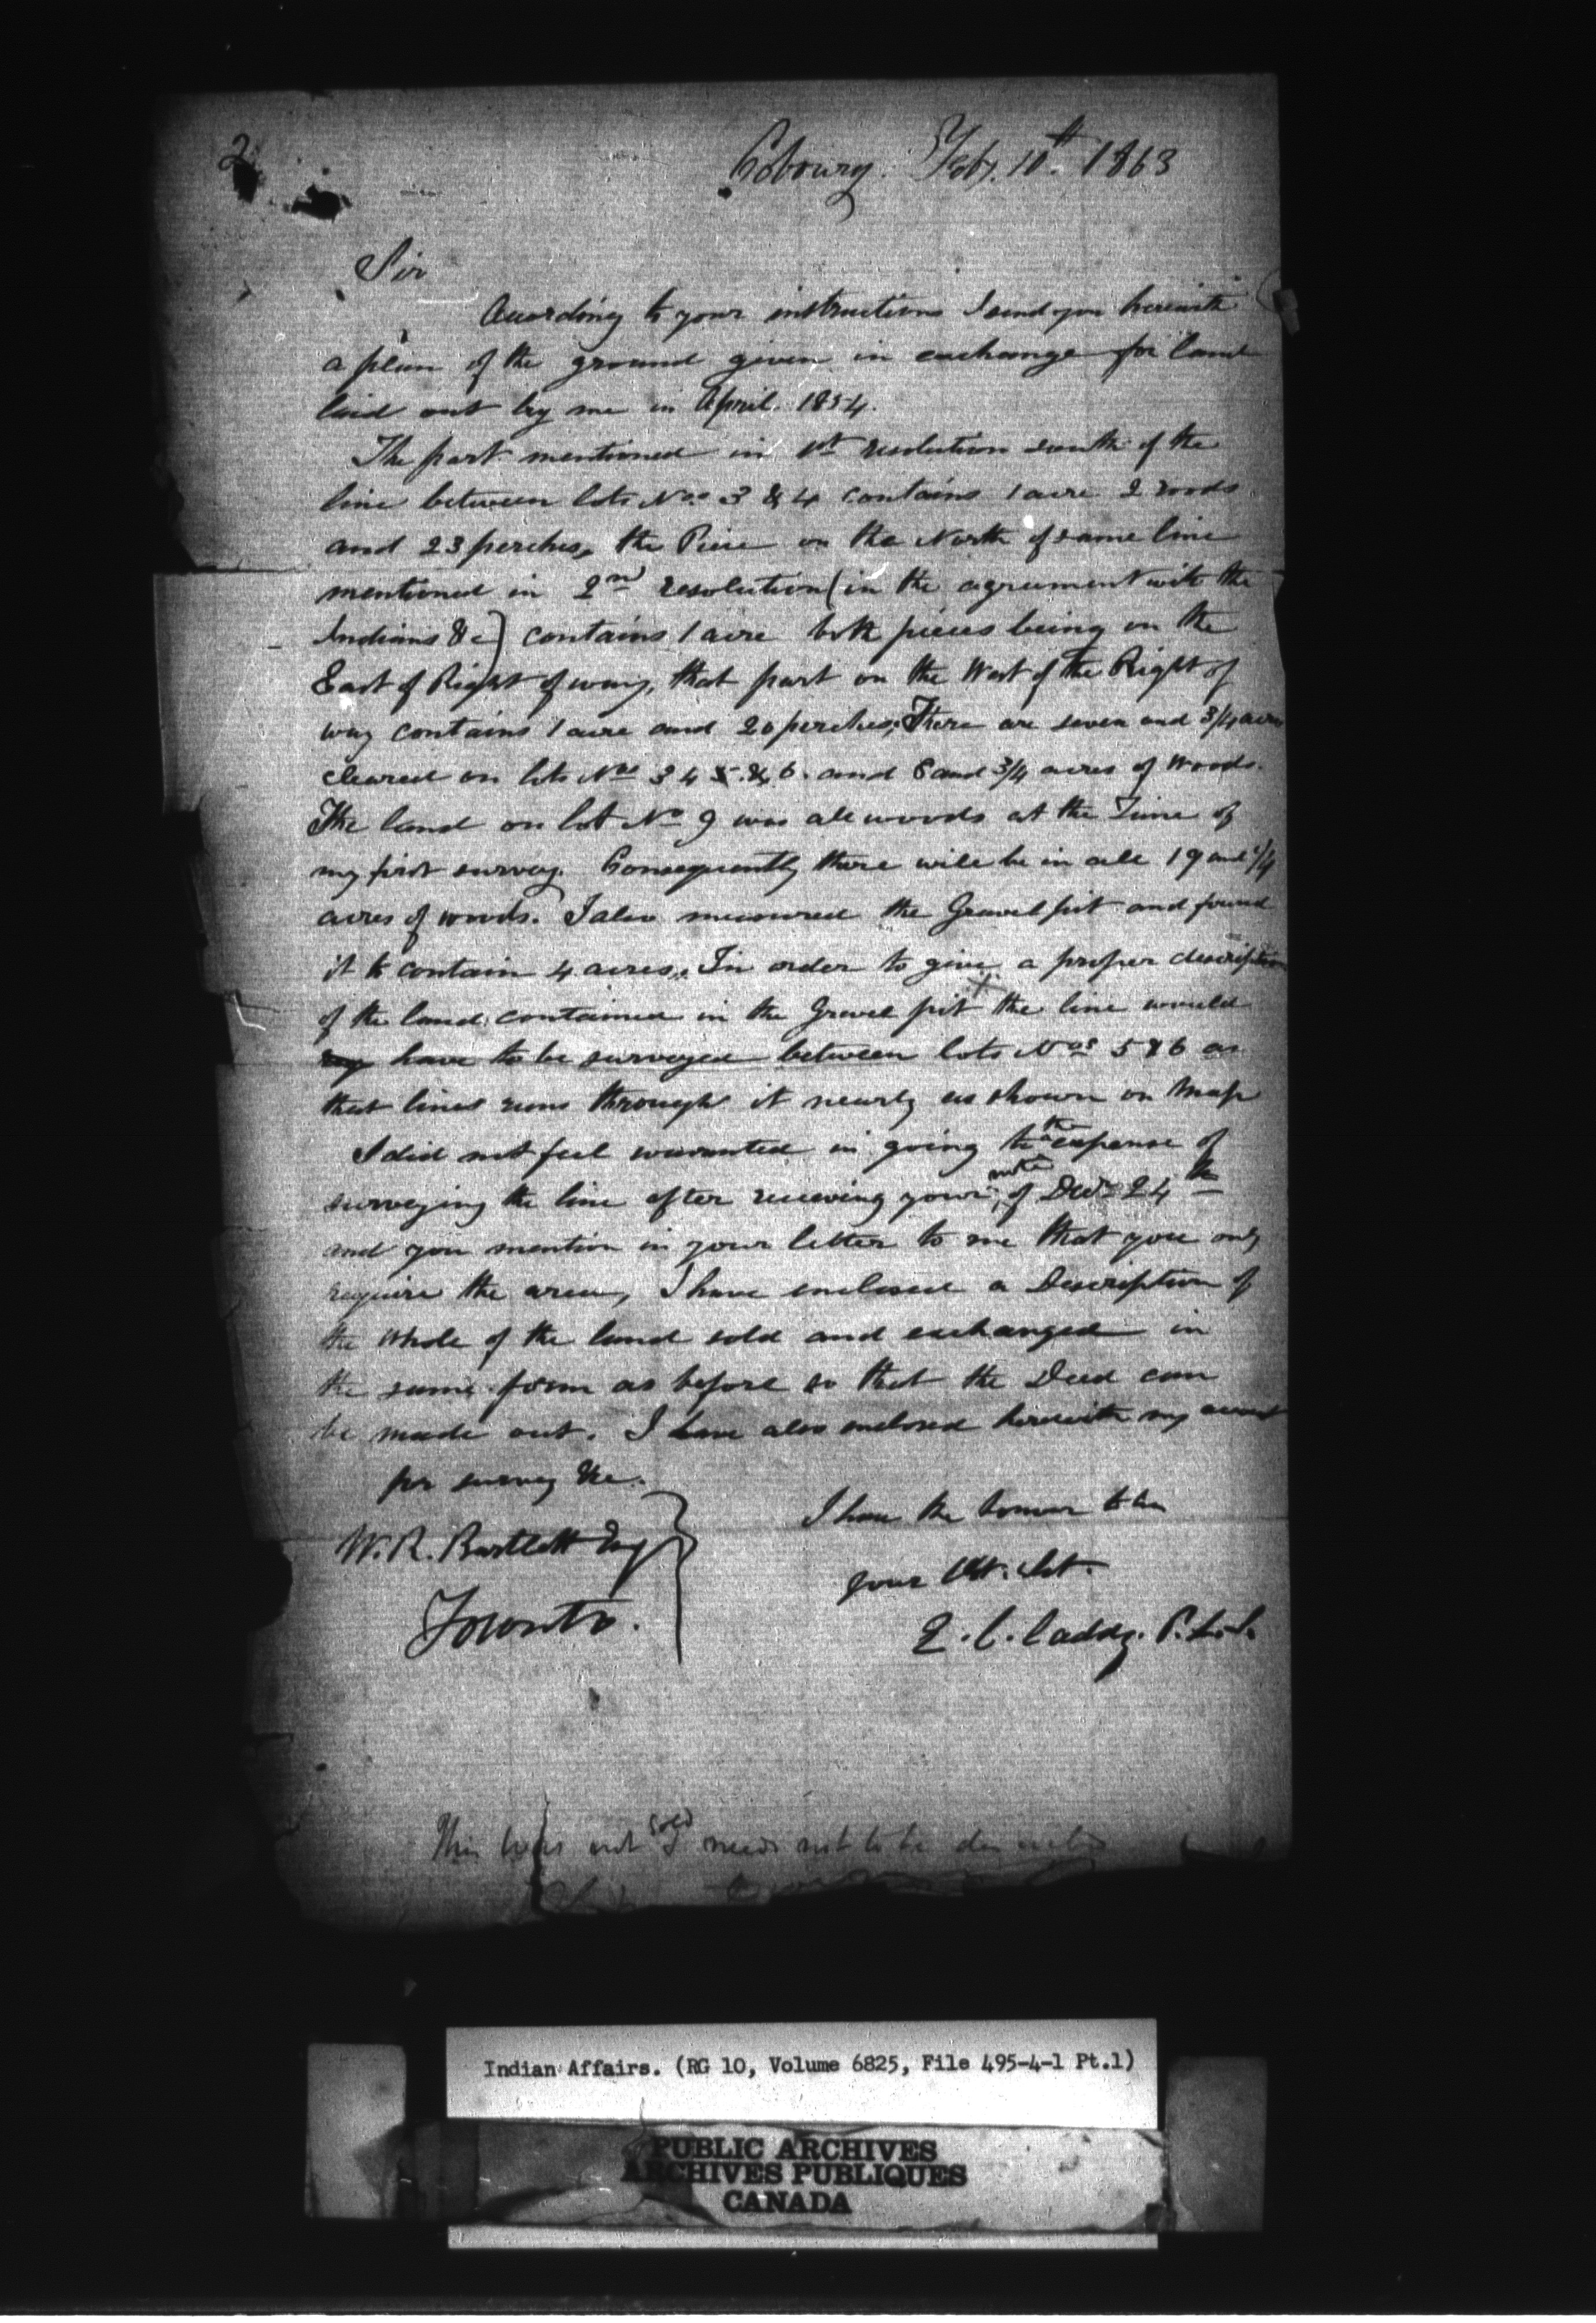 2
Cobourg. Feby. 10th 1863
Sir
According to your instructions I send you herewith
a plan of the ground given in exchange for land
laid out by me in April 1854.
The part mentioned in 1st resolution south of the
line between lots Nos 3 & 4 contains 1 acre 2 roods
and 23 perches, the Piece on the North of same line
mentioned in 2nd resolution (in the agreement with the
Indians &c) contains 1 acre both pieces being on the
East of Right of way, that part on the West of the Right of
way contains 1 acre and 20 perches, There are seven and 3/4 acres
cleared on lots Nos 3 4 5 & 6. and 8 and 3/4 acres of Woods.
The land on lot No 9 was all woods at the Time of
my first survey. Consequently there will be in all 19 and 1/4
acres of woods. I also measured the Gravel pit and found
it to contain 4 acres. In order to give a proper description
of the land contained in the Gravel pit the line would
have to be surveyed between lots Nos 5 & 6 as
that lines runs through it nearly as shown on Map
I did not feel warranted in going to the expense of
surveying the line after receiving your note of Decr 24th
and you mention in your letter to me that you only
require the area, I have enclosed a Description of
the whole of the land sold and exchanged in
the same form as before so that the Deed can
be made out. I have also enclosed herewith my account
for survey &c.
I have the honour to be
W. R. Bartlett Esq
your Obt. Svt.
Toronto.
E. C. Caddy. P.L.S.
This was not sold & needs not to be
Indian Affairs. (RG 10, Volume 6825, File 495-4-1 Pt.1)
PUBLIC ARCHIVES
ARCHIVES PUBLIQUES
CANADA